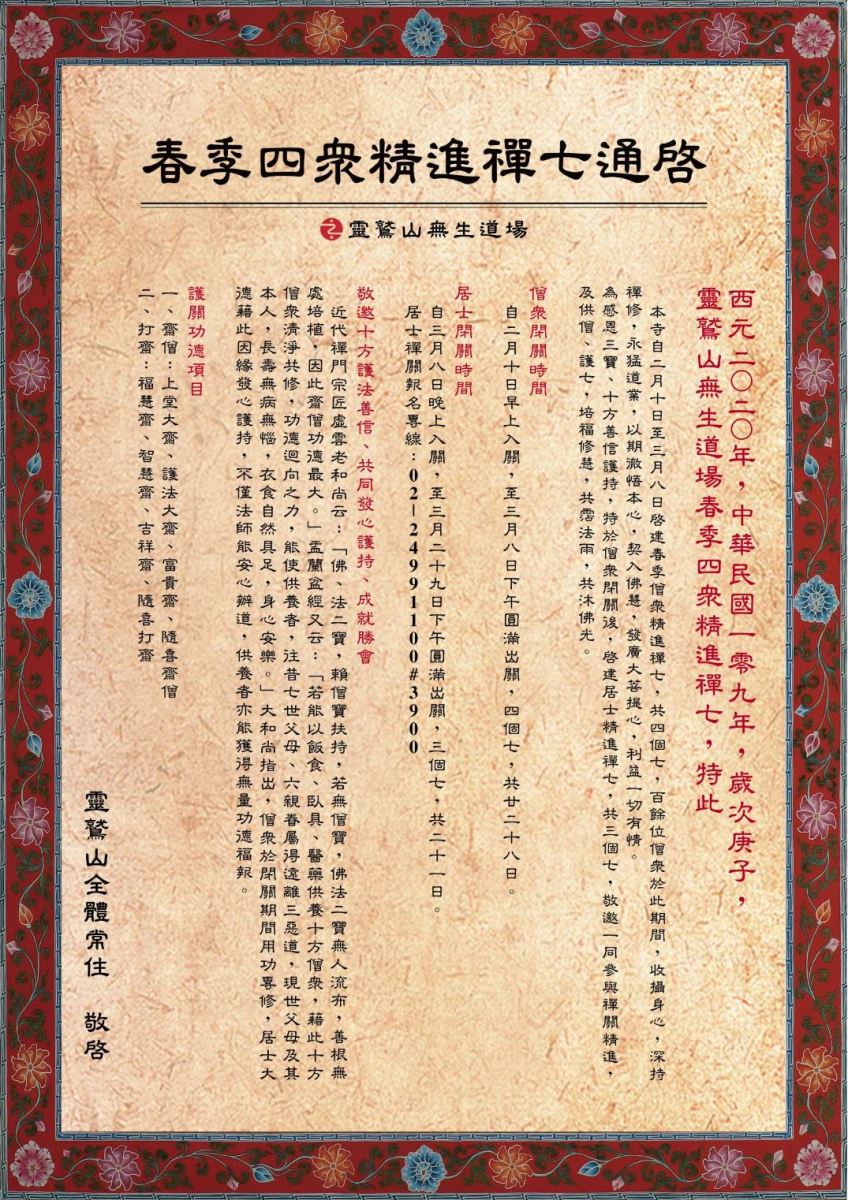 春季四眾精進禪七通啓
靈鷲山無生道場
西元二〇二〇年，中華民國一零九年，歲次庚子，
靈鷲山無生道場春季四眾精進禪七，特此
本寺自二月十日至三月八日啓建春季僧眾精進禪七，共四個七，百餘位僧眾於此期間，收攝身心，深持
禪修，永猛道業，以期澈悟本心，契入佛慧，發廣大菩提心，利益一切有情。
為感恩三寶、十方善信護持，特於僧眾閉關後，啓建居士精進禪七，共三個七，敬邀一同參與禪關精進，
及供僧、護七，培福修慧，共霑法雨，共沐佛光。
僧眾閉關時間
自二月十日早上入關，至三月八日下午圓滿出關，四個七，共廿二十八日。
居士閉關時間
自三月八日晚上入關，至三月二十九日下午圓滿出關，三個七，共二十一日。
居士禪關報名專線：02-24991100#3900
敬邀十方護法善信、共同發心護持、成就勝會
近代禪門宗匠虛雲老和尚云：「佛、法二寶，賴僧寶扶持，若無僧寶，佛法二寶無人流布，善根無
處培植，因此齋僧功德最大。」盂蘭盆經又云：「若能以飯食、臥具、醫藥供養十方僧眾，藉此十方
僧眾清淨共修，功德迴向之力，能使供養者，往昔七世父母、六親眷屬得遠離三惡道，現世父母及其
本人，長壽無病無惱，衣食自然具足，身心安樂。」大和尚指出，僧眾於閉關期間用功專修，居士大
德藉此因緣發心護持，不僅法師能安心辦道，供養者亦能獲得無量功德福報。
護關功德項目
一、齋僧：上堂大齋、護法大齋、富貴齋、隨喜齋僧
二、打齋：福慧齋、智慧齋、吉祥齋、隨喜打齋
靈鷲山全體常住　敬啓